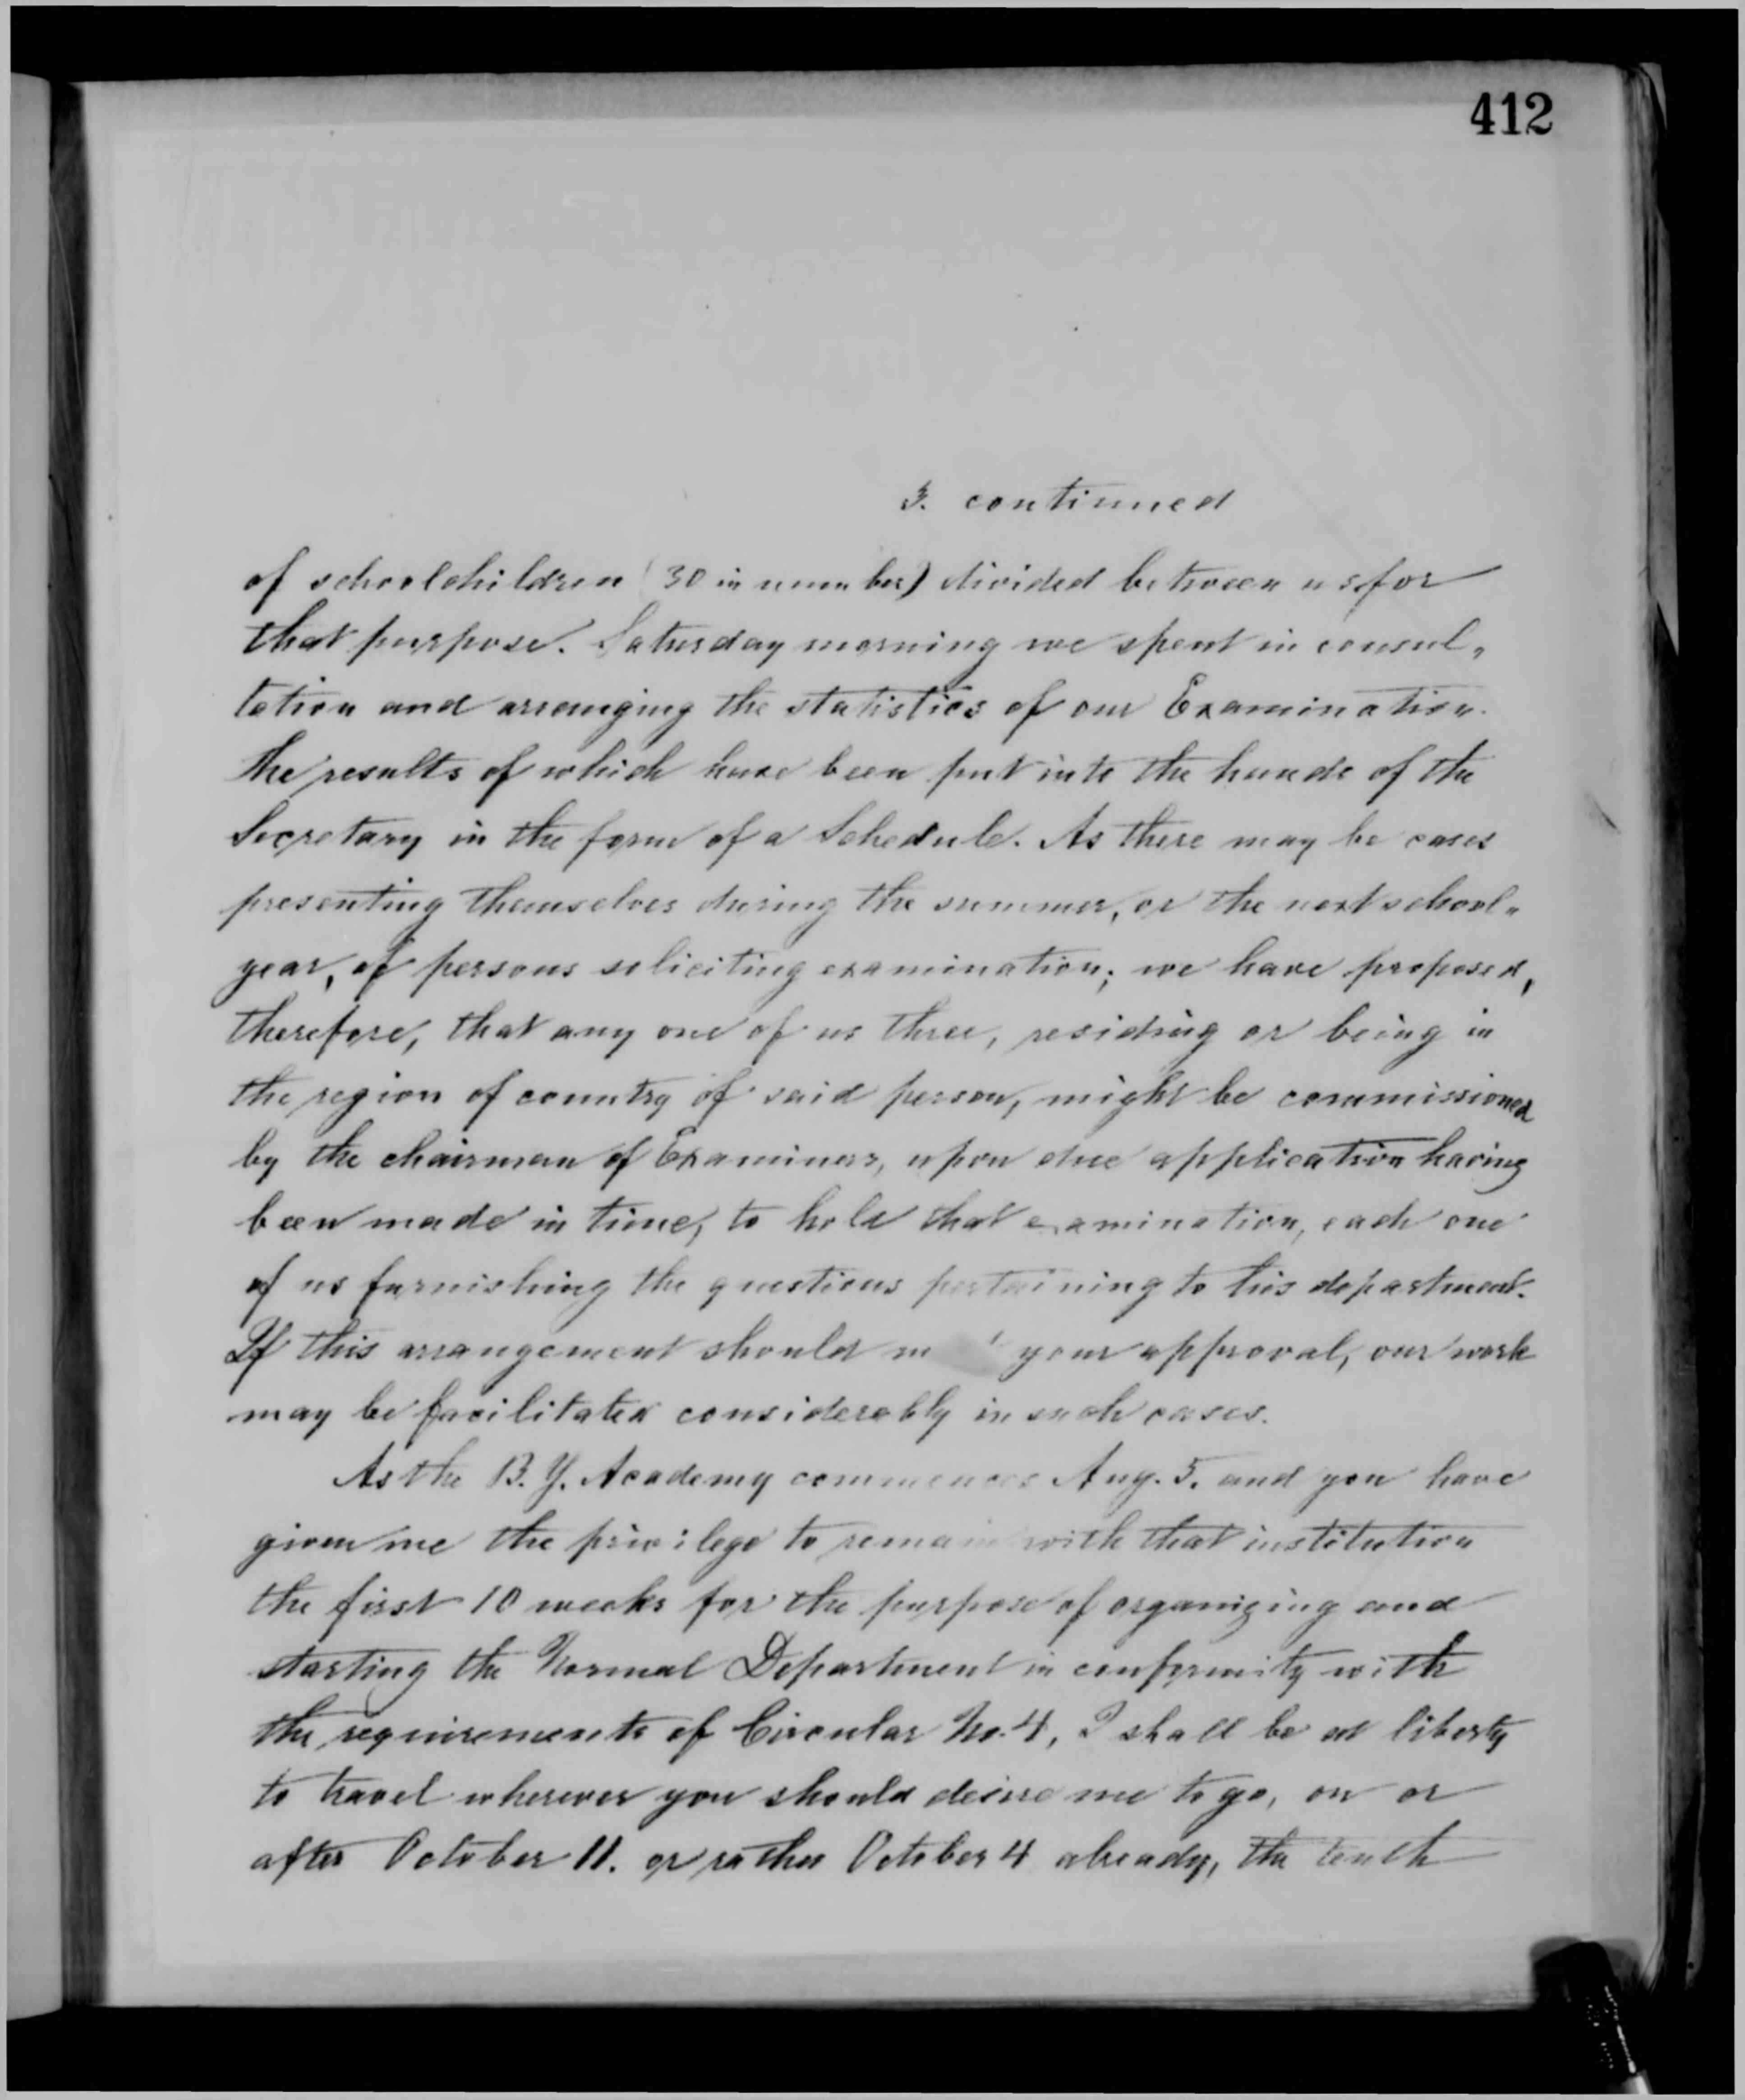 412
3. continued
of schoolchildren (30 in number) divided between us for
that purpose. Saturday morning we spent in consul-
tation and arranging the statistics of our Examination.
the results of which have been put into the hands of the
Secretary in the form of a Schedule. As there may be cases
presenting themselves during the summer, or the next school-
year, of persons soliciting examination; we have proposed,
therefore, that any one of us three, residing or being in
the region of country of said person, might be commissioned
by the chairman of Examiners, upon due application having
been made in time, to hold that examination, each one
of us furnishing the questions pertaining to his department.
If this arrangement should your approval, our work
may be facilitated considerably in such cases.
As the B. Y. Academy commences Aug. 5. and you have
given me the privilege to remain with that institution
the first 10 weeks for the purpose of organizing and
starting the Normal Department in conformity with
the requirements of Circular No. 4, I shall be at liberty
to travel wherever you should desire me to go, on or
after October 11. or rather October 4 already, the tenth